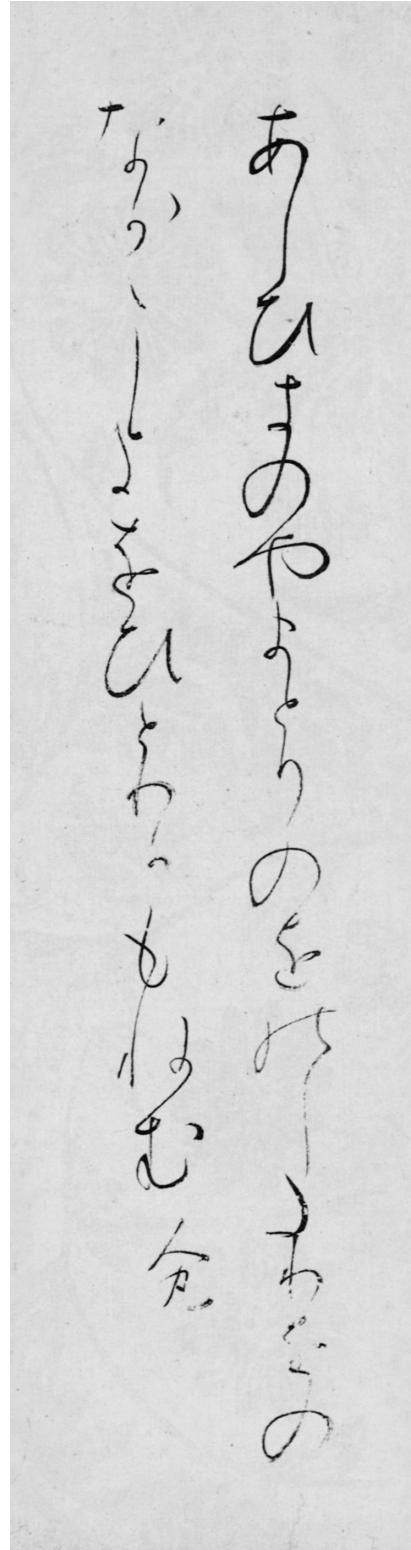 あしひきのやまとりのをのしたりをの
なか〱しよをひとりかもねむ